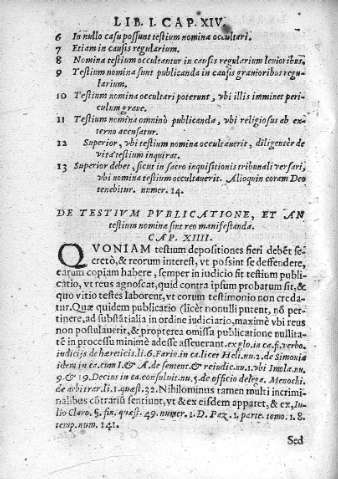 LIB. I. CAP. XIV.
6 In nullo casu possunt testium nomina occultari.
7 Etiam in causis regularium.
8 Nomina testium occultantur in causis regularium leuioribus.
9 Testium nomina sunt publicanda in causis grauioribus regu-
larium.
10 Testium nomina occultari poterunt, vbi illis imminet peri-
culum graue.
11 Testium nomina omninò publicanda, vbi religiosus ab ex-
terno accusatur.
12 Superior, vbi testium nomina occultauerit, diligentèr de
vita testium inquirat.
13 Superior debet, sicut in sacro inquisitionis tribunali versari,
vbi nomina testium occultauerit. Alioquin coram Deo
tenebitur. numer. 14.
DE TESTIVM PVBLICATIONE, ET AN
testium nomina sint reo manifestanda.
CAP. XIIII.
QVONIAM testium depositiones fieri debēt se-
cretò, & reorum interest, vt possint se deffendere,
earum copiam habere, semper in iudicio sit testium publi-
catio, vt reus agnoscat, quid contra ipsum probatum sit, &
quo vitio testes laborent, vt eorum testimonio non creda-
tur. Quæ quidem publicatio (licèt nonnulli putent, nō per-
tinere, ad substātialia in ordine iudiciario, maximè vbi reus
non postulauerit, & propterea omissa publicatione nullita-
tē in processu minimè adesse asseuerant. explo. in ca. fi. verbo.
iudicijs de hæreticis. li. 6. Farin. in ca. licet Heli. nu. 2. de Simonia
idem in ca. cum I. & A. de sentent. & re iudic. nu. 1. vbi Imola. nu.
9. & 19. Decius in ca. consuluit. nu. 5. de officio deleg. Menochi.
de arbitrar. li. 1. quæst. 32.) Nihilominus tamen multi incrimi-
nalibus cōtrariū sentiunt, vt & ex eisdem apparet, & ex, Iu-
lio Claro. §. fin. quæst. 49. numer. 1. D. Paz. 1. parte. tomo. 1. 8.
temp. num. 141.
Sed